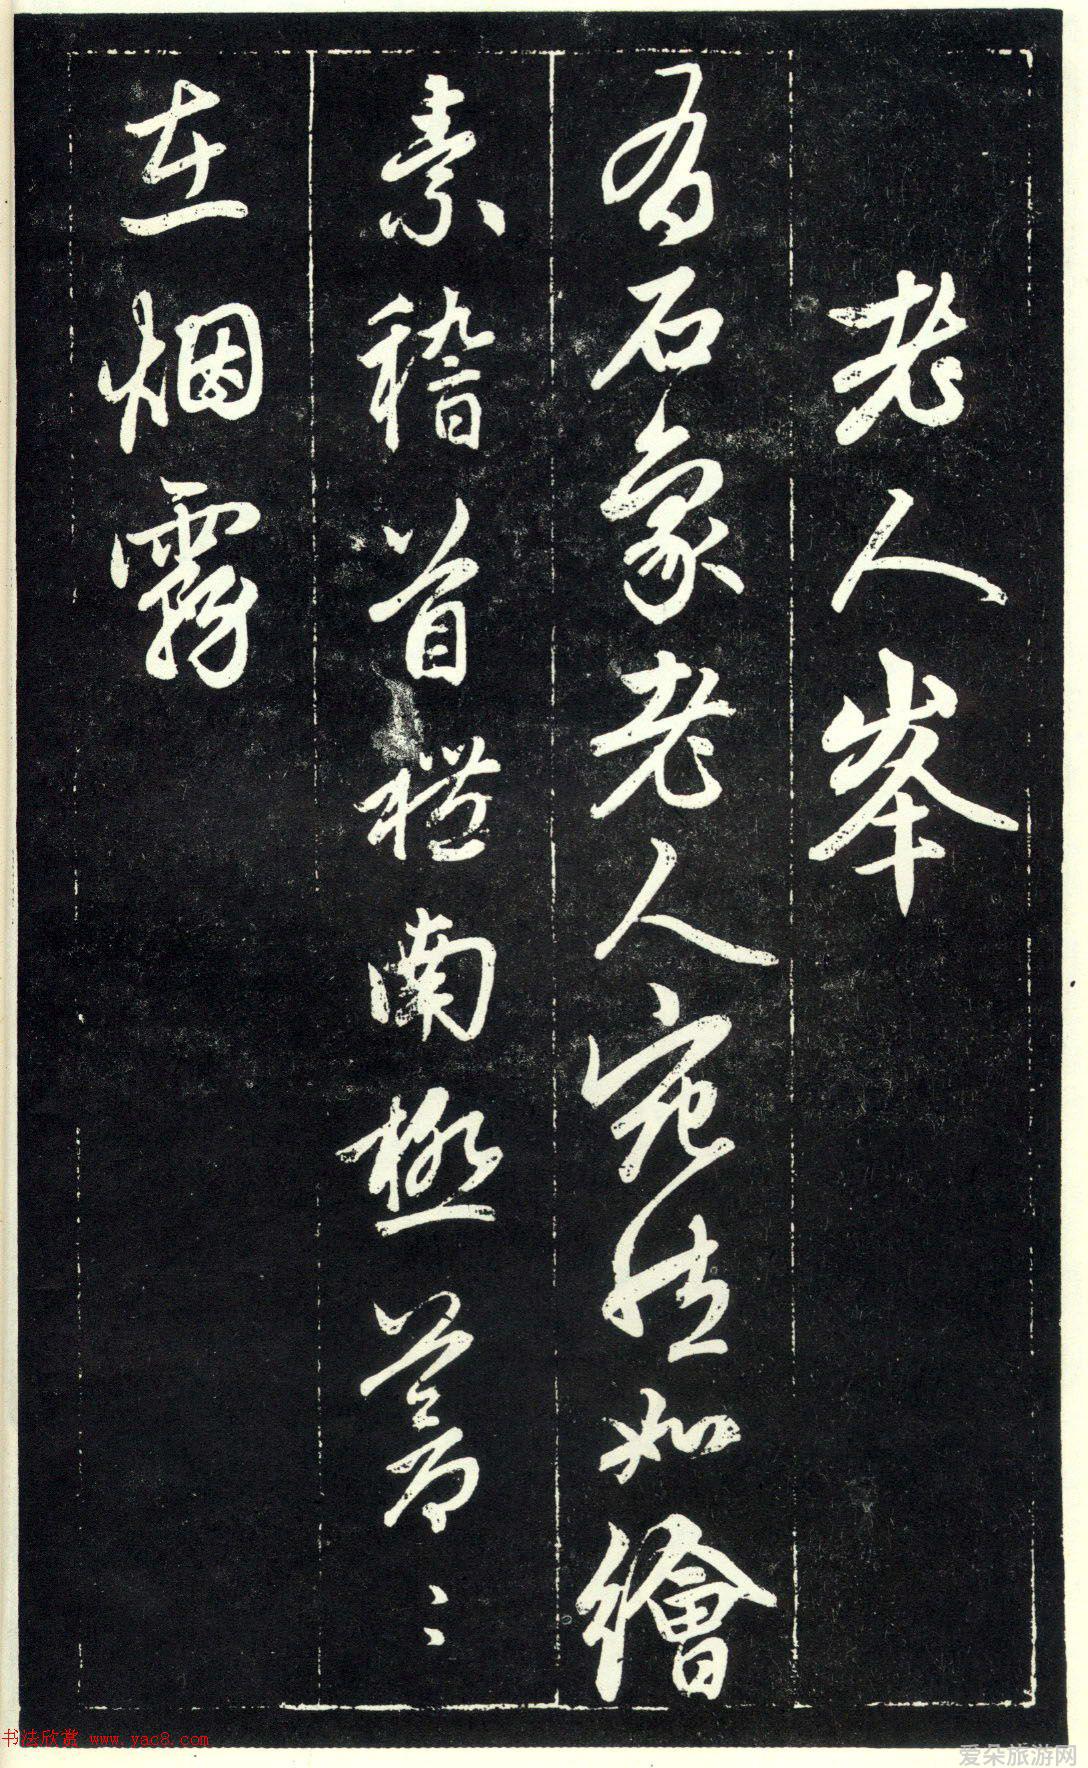 老人峯
有石象老人宛然如繪
素稽首禮南極蒼〻
在烟霧
书法欣赏 www.yac8.com
爱朵旅游网